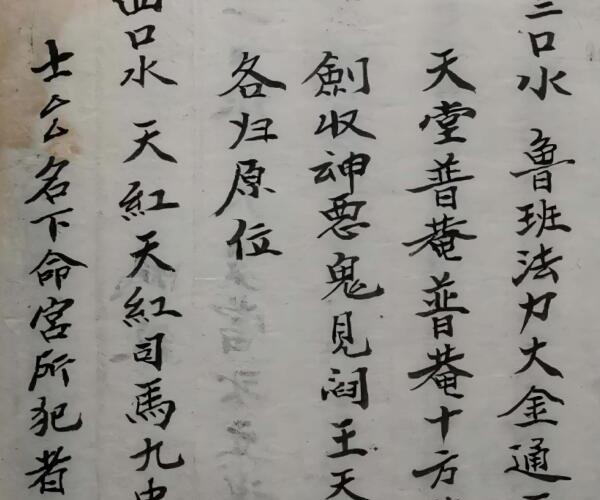 三口水 魯班法力大金通
天堂普菴普菴十方
劍收神惡鬼見閻王天
各归原位
四口水 天紅天紅司馬九
士厶名下命宮所犯者